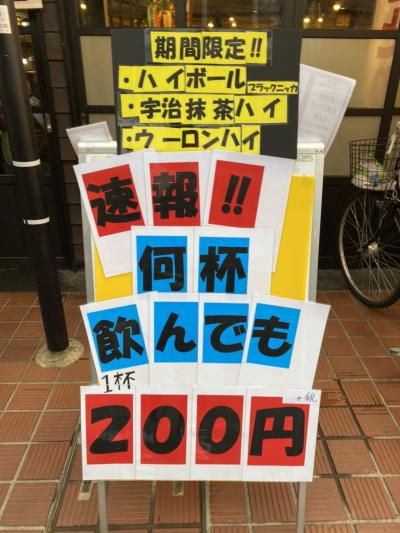 期間限定!!
・ハイボール ブラックニッカ
・宇治抹茶ハイ
・ウーロンハイ
速報!!
何杯
飲んでも
1杯
200円
+税